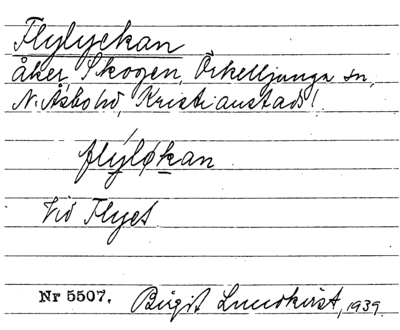 Flylyckan
åker, Skogen, Örkelljunga sn,
N. Åsbo hd, Kristianstads l.
flýløkan
Vid Flyet
Nr 5507. Birgit Lundkvist, 1939.